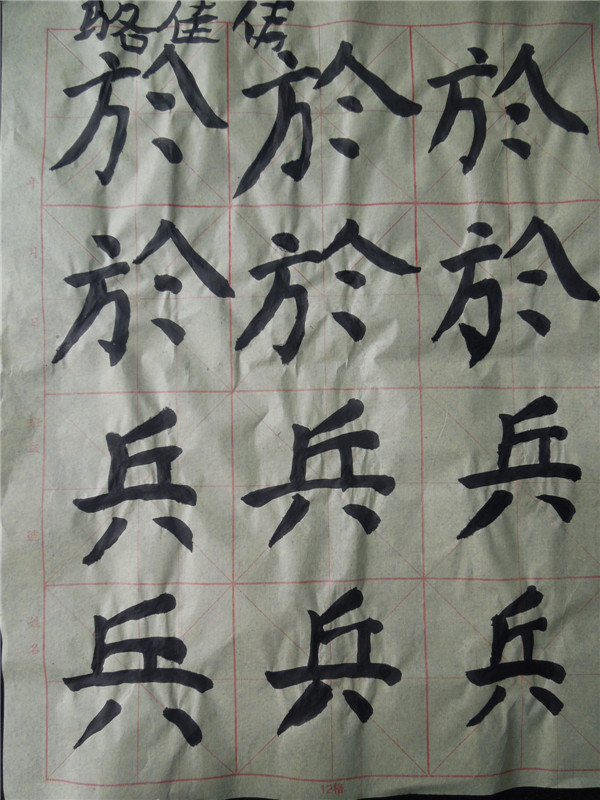 於於於
於於於
兵兵兵
兵兵兵
12格